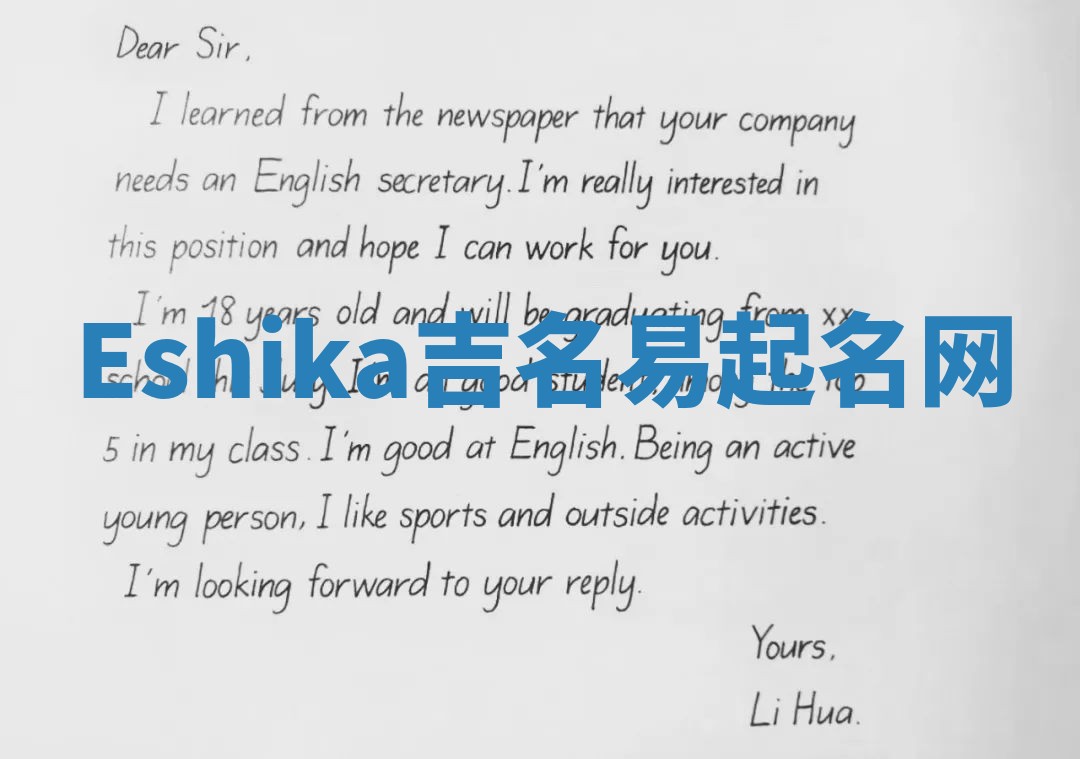 Dear Sir,
I learned from the newspaper that your company
needs an English secretary. I'm really interested in
this position and hope I can work for you.
I'm 18 years old and will be graduating from xx
Eshika吉名易起名网
school this July. I'm a good student, among the top
5 in my class. I'm good at English. Being an active
young person, I like sports and outside activities.
I'm looking forward to your reply.
Yours,
Li Hua.